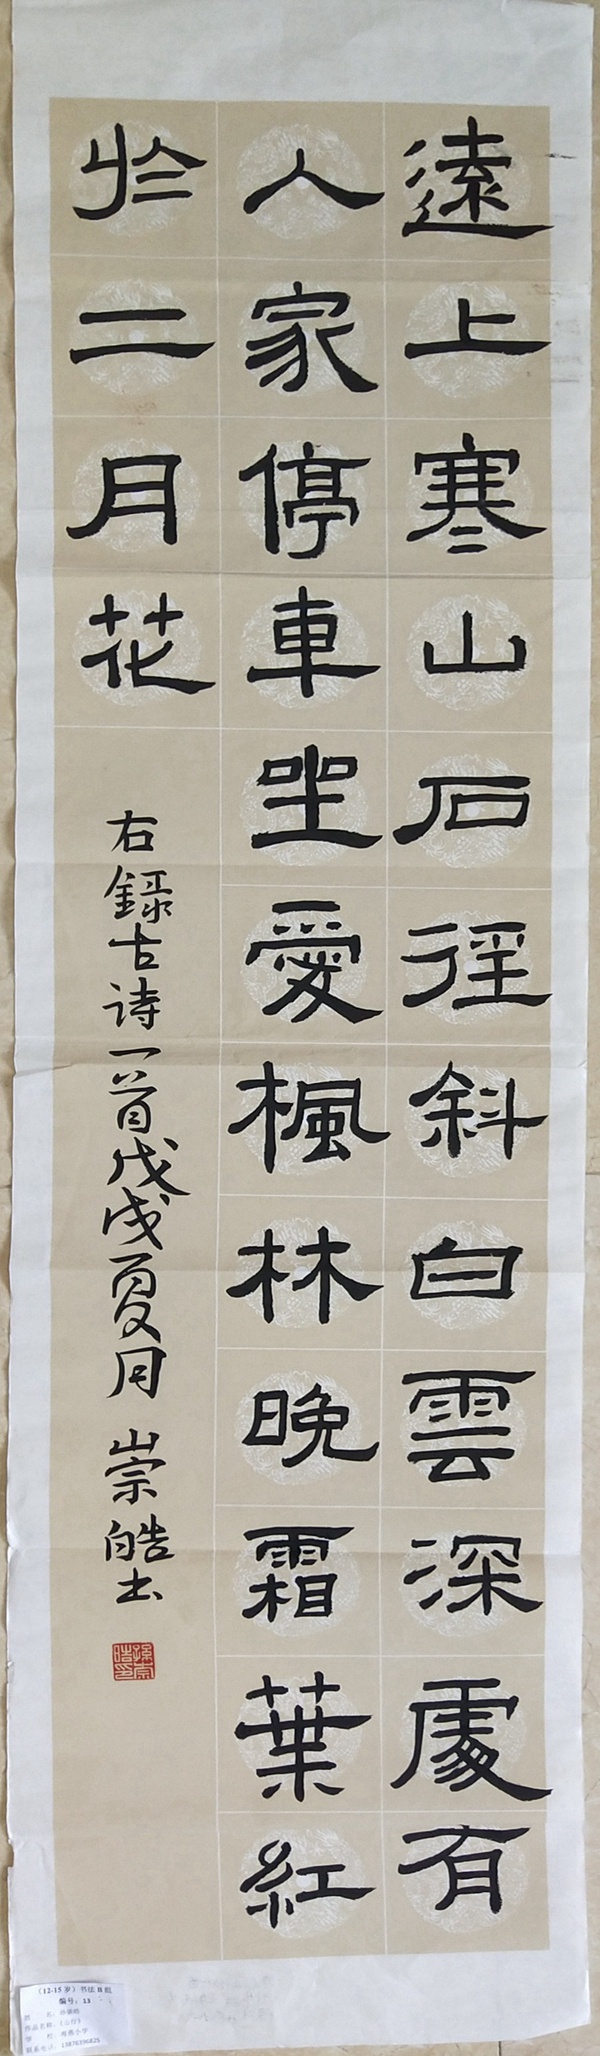 遠上寒山石徑斜白雲深處有
人家停車坐愛楓林晚霜葉紅
於二月花
右録古詩一首戊戌夏月 崇皓书
(12-15岁)书法B组
编号:13
作品名称:《山行》